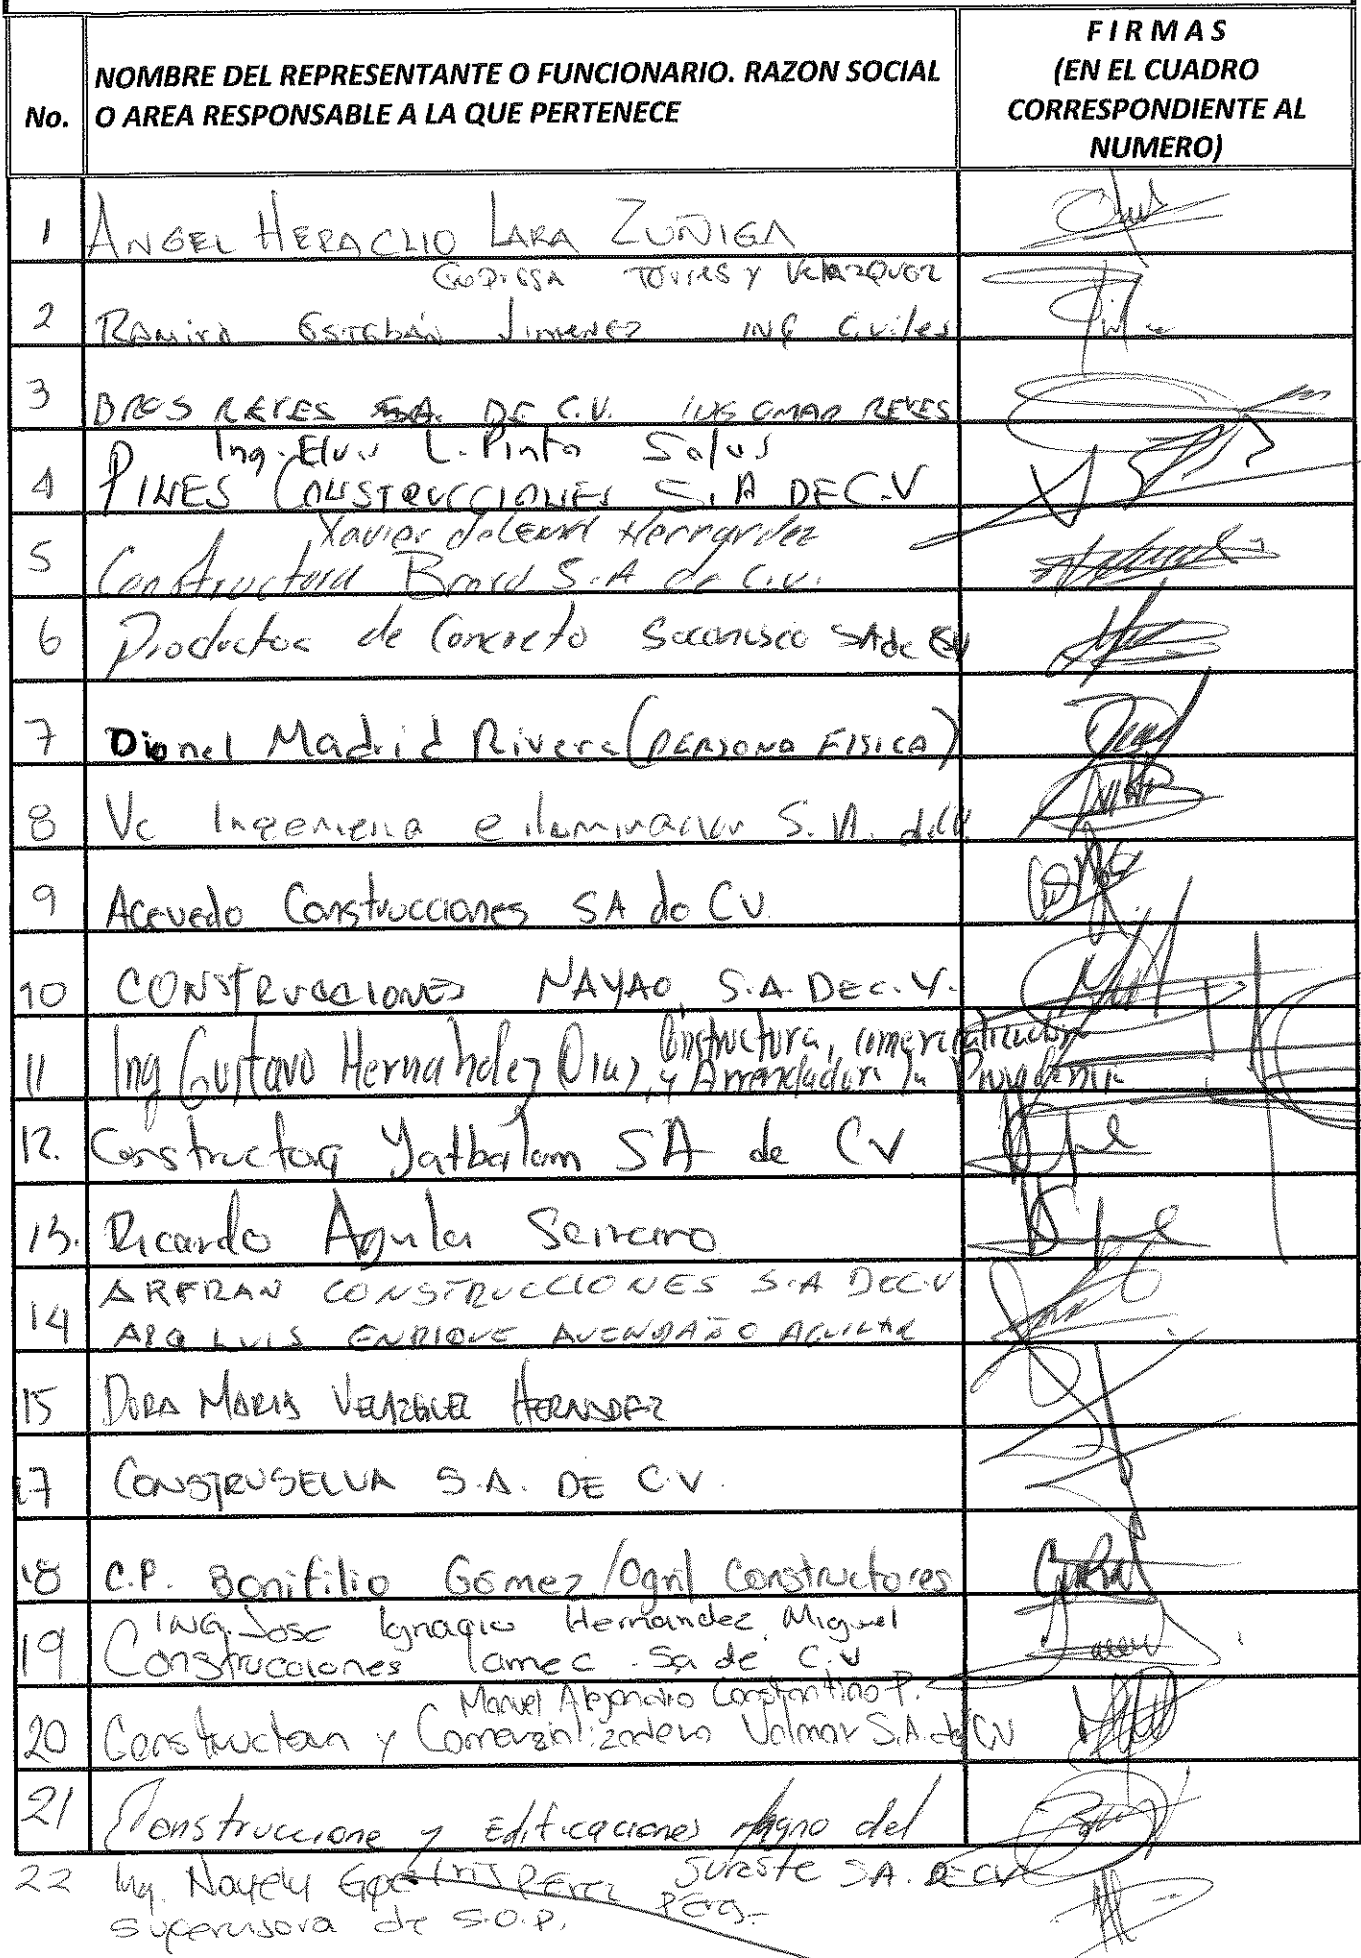 No.
NOMBRE DEL REPRESENTANTE O FUNCIONARIO. RAZON SOCIAL
O AREA RESPONSABLE A LA QUE PERTENECE
FIRMAS
(EN EL CUADRO
CORRESPONDIENTE AL
NUMERO)
1 ANGEL HERACLIO LARA ZUÑIGA
TORRES Y VELAZQUEZ
2 RAMIRO ESTEBAN JIMENEZ ING Civiles
3 BROS REYES S.A. DE C.V. ING OMAR REYES
Ing. Elvis L. Pinto Solis
4 PINES CONSTRUCCIONES S.A DE C.V
Xavier de Hernandez
5 Constructora S.A de C.V.
6 Productos de Concreto Soconusco SA de CV
7 Dionel Madrid Rivera (PERSONA FISICA)
8 Vc Ingenieria e iluminacion S.A. de CV
9 Acevedo Construcciones SA de CV
10 CONSTRUCCIONES NAYAO, S.A. DE C.V.
Constructora, comercializadora
11 Ing Gustavo Hernandez Diaz, y Arrendadora la Providencia
12. Constructora Yatbalam SA de CV
13. Ricardo Aguilar Serrano
14 ARFRAN CONSTRUCCIONES S.A DE C.V
ARQ LUIS ENRIQUE AVENDAÑO AGUILAR
15 DORA MARIA VELAZQUEZ HERNANDEZ
17 CONSTRUSELVA S.A. DE C.V.
18 C.P. Bonifilio Gómez / Ogril Constructores
ING. Jose Ignacio Hernández Miguel
19 Construcciones Tamec. Sa de C.V
Manuel Alejandro Constantino P.
20 Constructora y Comercializadora Valmar S.A. de CV
21 Construccione y Edificaciones Magno del
Sureste SA. DE CV
22 Ing. Nayely Gpe PEREZ
PEREZ
supervisora de S.O.P.